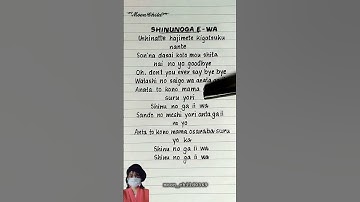 "Moon Child"
SHINUNOGA E-WA
Ushinatte hajimete kigatsuku
nante
Son'na dasai koto mou shita
nai no yo goodbye
Oh, don't you ever say bye bye
Watashi no saigo wa anata
Anata to kono mama
suru yori
Shinu no ga ii wa
Sando no meshi yori anta ga ii
no yo
Anta to kono mama osaraba suru
yo ka
Shinu no ga ii wa
Shinu no ga ii wa